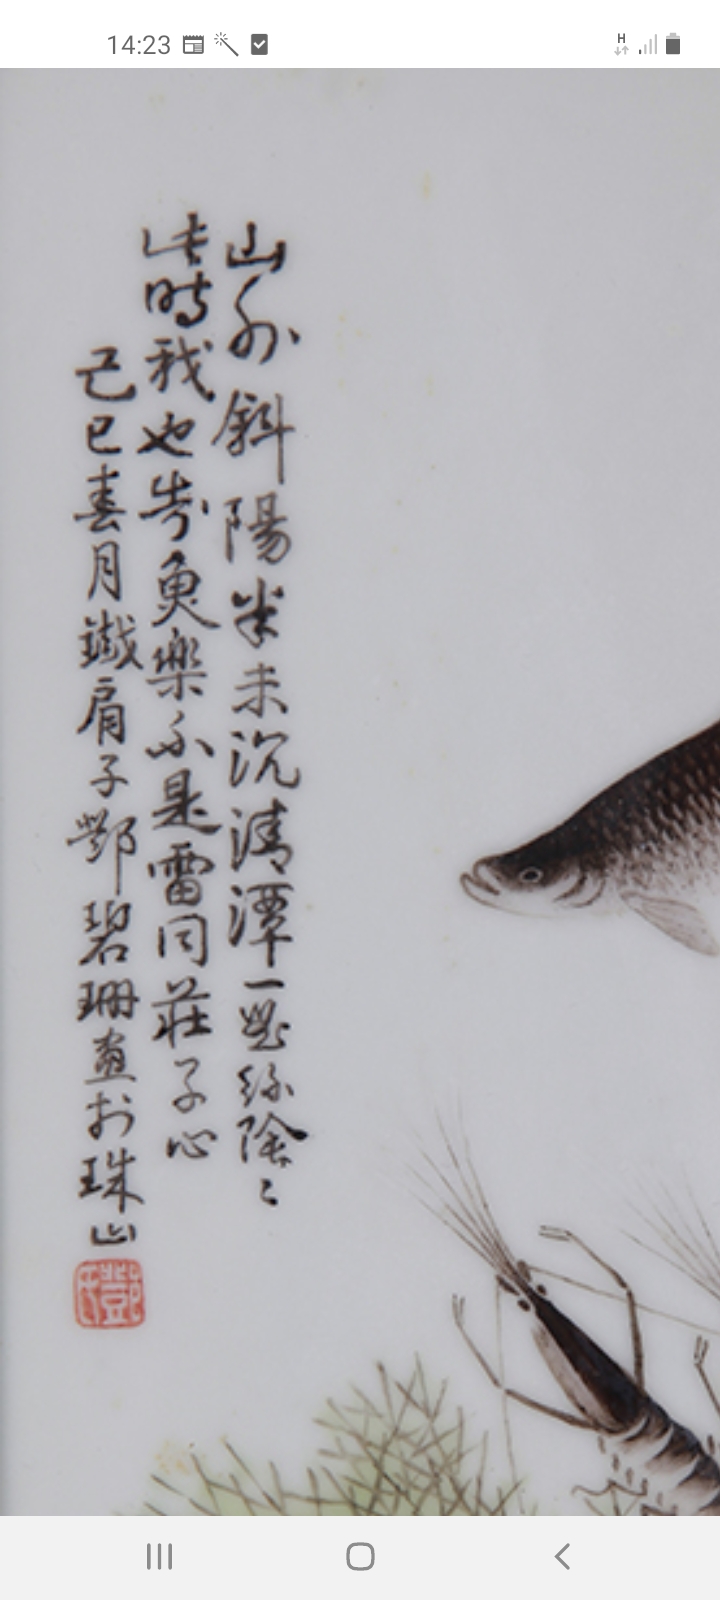 14:23
H
山外斜陽半未沉清潭一綠陰々
此時我也知魚樂不是雷同莊子心
己巳春月鐵肩子鄧碧珊畫於珠山
鄧氏